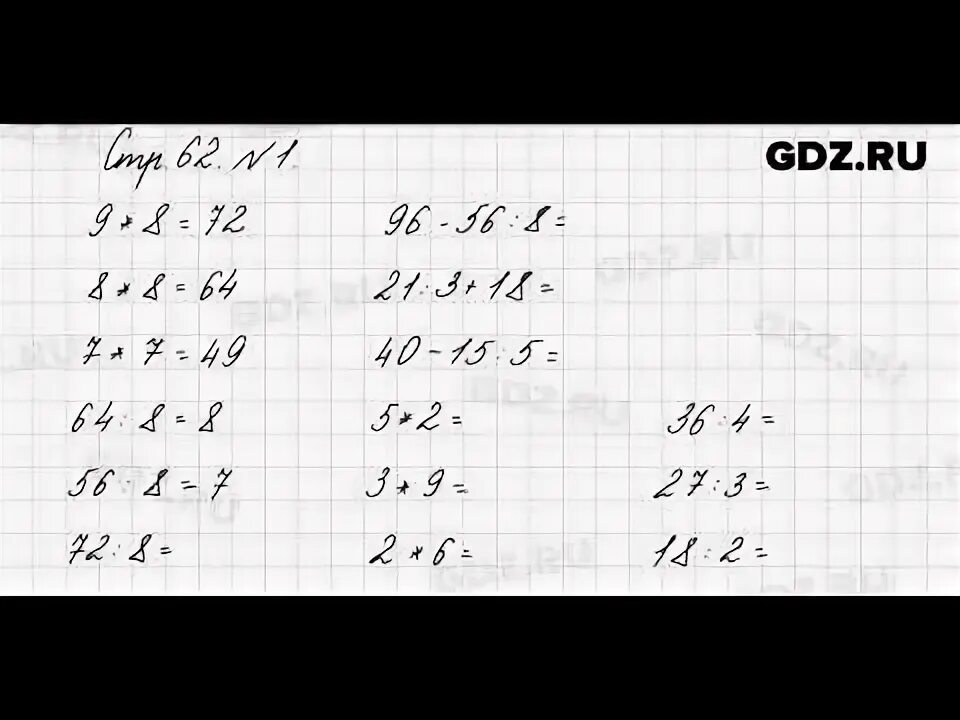 Стр. 62. №1.
GDZ.RU
9 * 8 = 72
96 - 56 : 8 =
8 * 8 = 64
21 : 3 + 18 =
7 * 7 = 49
40 - 15 : 5 =
64 : 8 = 8
5 * 2 =
36 : 4 =
56 : 8 = 7
3 * 9 =
27 : 3 =
72 : 8 =
2 * 6 =
18 : 2 =